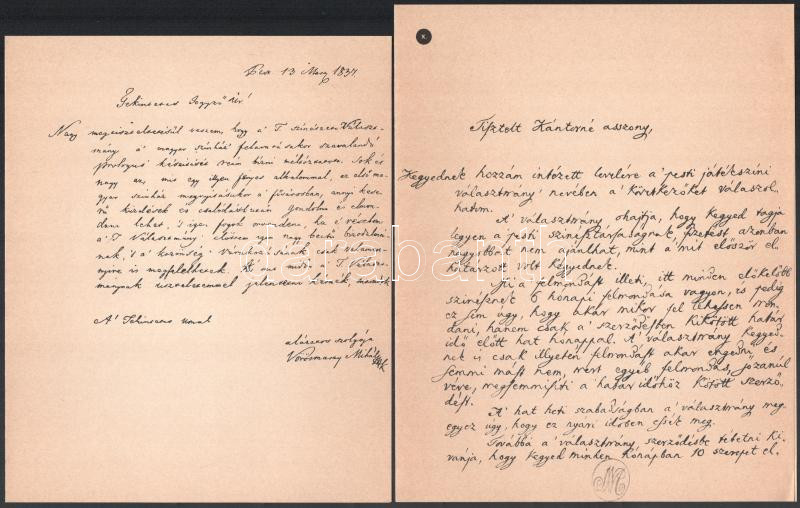 Pest 13 Marcz 1837
Tekintetes Jegyző Úr!
Nagy megtiszteltetésül veszem, hogy a' T. Színészeti Válasz-
mány a' magyar színház felavatásakor szavalandó
prologus készítését reám bízni méltóztatott. Sok és
nagy az, mit egy ilyen fényes alkalommal, az első ma-
gyar színház megnyitásakor a' fővárosban, annyi
küzdések és csalódások után gondolni és elmon-
dani lehet, 's igen fogok örvendeni, ha e' részben
a' T. Választmány' előttem igen nagy becsű bizodalmá-
nak, 's a' közönség' várakozásának csak valameny-
nyire is megfelelhetek. Ki a' midőn a' T. Választ-
mánynak tisztelettel jelenteni kérném,
A' Tekintetes urnak
alázatos szolgája
Vörösmarty Mihály
K
Tisztelt Kántorné asszony,
Kegyednek hozzám intézett levelére a' pesti játékszíni
választmány' nevében a' következőket válaszol-
hatom.
A' választmány óhajtja, hogy kegyed tagja
légyen a' pesti színésztársaságnak, fizetést azonban
nagyobbat nem ajánlhat, mint a' mit először el
határzott volt kegyednek.
Mi a' felmondást illeti, itt minden előkelőbb
színésznek 6 hónapi felmondása vagyon, és pedig
ez sem úgy, hogy akár mikor fel lehessen mon-
dani, hanem csak a' szerződésben kikötött határ
idő előtt hat hónappal. A' választmány kegyed-
net is csak illyetén felmondást akar engedni, és
semmi mást nem, mert egyéb felmondás, józanúl
véve, megsemmisíti a' határ időhöz kötött szerző-
dést.
A' hat heti szabadságban a' választmány meg-
egyez úgy, hogy ez nyári időben essék meg.
Továbbá a' választmány szerződésbe tétetni ki-
vánja, hogy kegyed minden hónapban 10 szerepet el-
darabanth